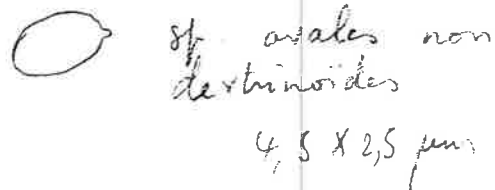 sp ovales non
dextrinoïdes
4,5 X 2,5 µm